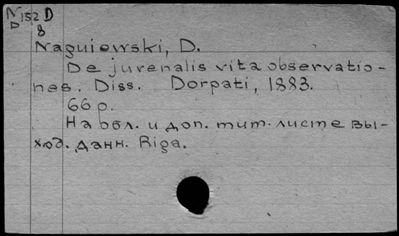 N 152 D
D 8
Naguiewski, D.
De juvenalis vita observatio-
nes. Diss. Dorpati, 1883.
66 p.
На обл. и доп. тит. листе вы-
ход. данн. Riga.